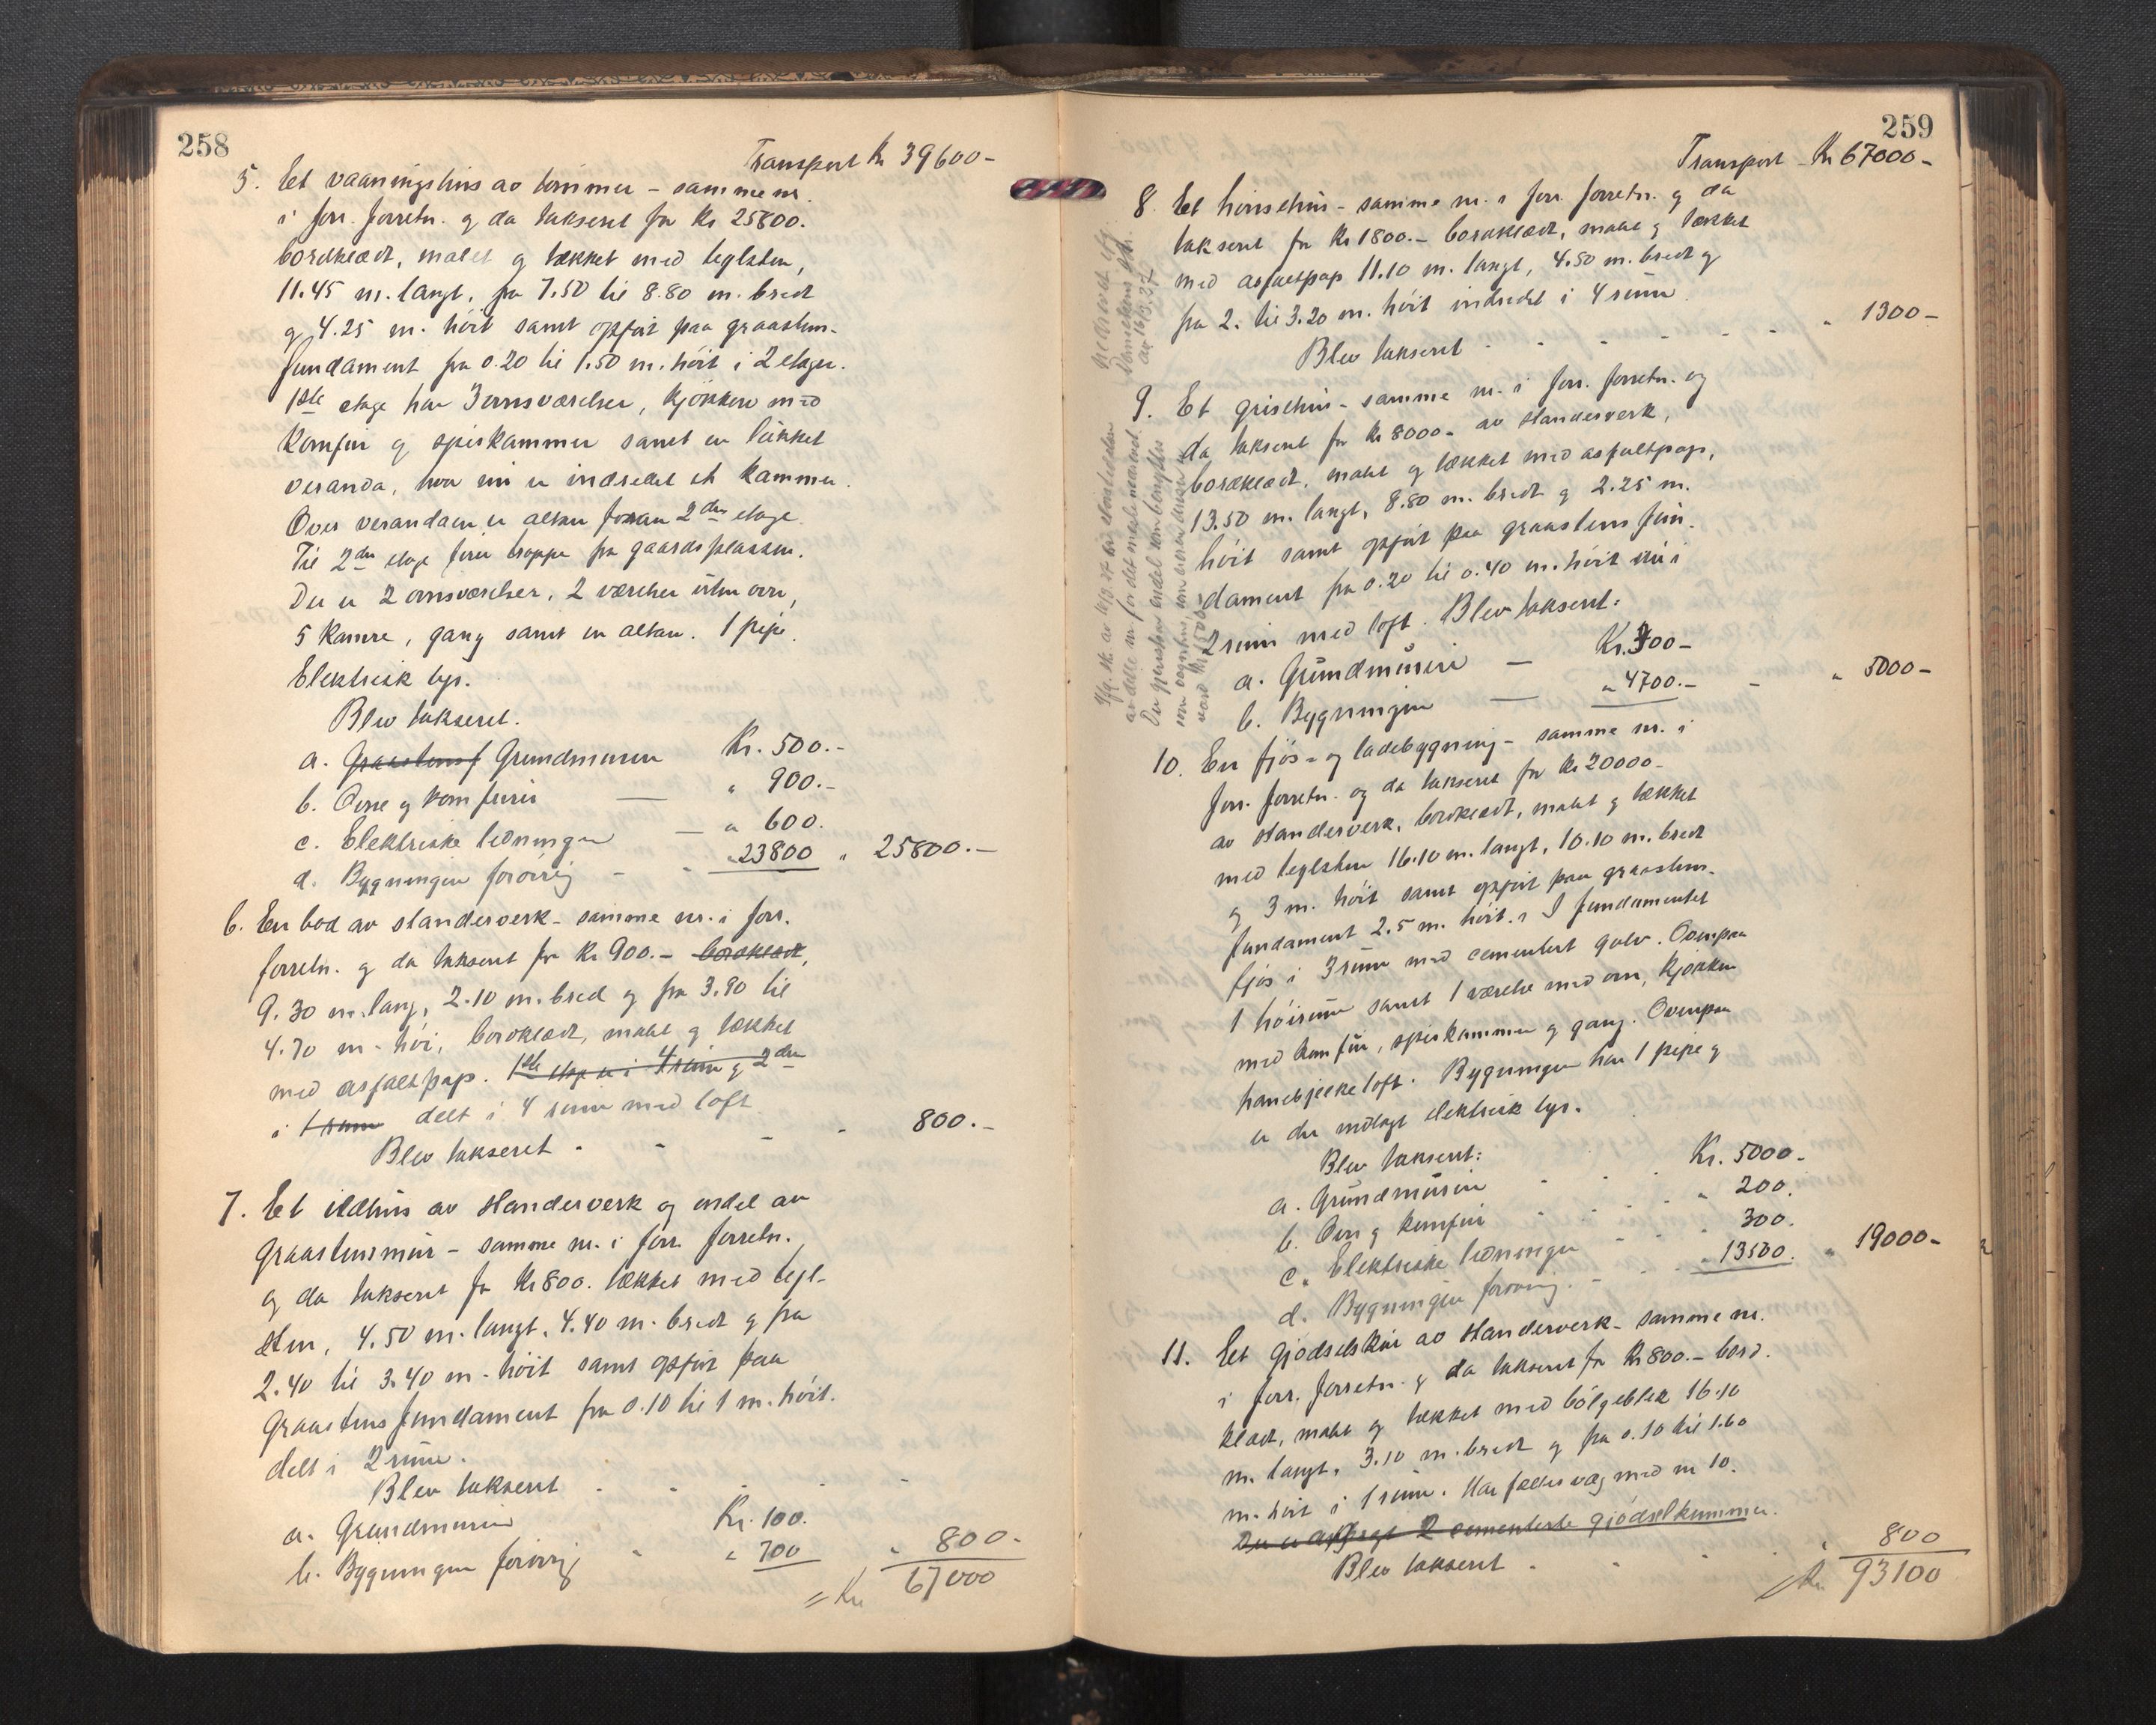 258
Transport Kr 39600-
5. Et vaaningshus av tømmer - samme nr.
i forr. forretn. og da takseret for Kr 25800.
bordklædt, malet og tækket med teglsten,
11.45 m. langt, fra 7.50 til 8.80 m. bredt
og 4.25 m. høit samt opført paa graastens-
fundament fra 0.20 til 1.50 m. høit i 2 etager.
1ste etage har 3 ovnsværelser, kjøkken med
Komfur og spiskammer samt en lukket
veranda, hvor nu er indredet et kammer.
Over verandaen er altan foran 2den etage.
Til 2den etage fører trappe fra gaardsplassen.
Der er 2 ovnsværelser, 2 værelser uten ovn,
5 kamre, gang samt en altan. 1 pipe.
Elektrisk lys.
Blev takseret.
a. Graastensf Grundmuren Kr. 500.-
b. Ovne og komfurer — " 900.-
c. Elektriske ledninger — " 600.
d. Bygningen forøvrig - - " 23800 " 25800.-
6. En bod av standerverk - samme nr. i forr.
forretn. og da takseret for Kr 900.- bordklædt,
9.30 m. lang, 2.10 m. bred og fra 3.90 til
4.70 m. høi, bordklædt, malet og tækket
med asfaltpap. 1ste etage er i 4 rum og 2den
i 1 rum delt i 4 rum med loft
Blev takseret - - - - 800.-
7. Et ildhus av standerverk og endel av
Graastensmur - samme nr. i forr. forretn.
og da takseret for Kr 800. tækket med tegl-
sten, 4.50 m. langt, 4.40 m. bredt og fra
2.40 til 3.40 m. høit samt opført paa
Graastensfundament fra 0.10 til 1 m. høit.
delt i 2 rum.
Blev takseret - - - - -
a. Grundmuren Kr. 100.
b. Bygningen forøvrig - " 700 " 800.-
= Kr 67000
259
Transport - Kr 67000-
8. Et hønsehus - samme nr. i forr. forretn. og da
takseret for Kr 1800.- bordklædt, malet og tækket
med asfaltpap 11.10 m. langt, 4.50 m. bredt og
fra 2. til 3.20 m. høit indredet i 4 rum.
Blev takseret - - - - - " 1300-
9. Et grisehus - samme nr. i forr. forretn. og
da takseret for Kr 8000- av standerverk,
bordklædt, malet og tækket med asfaltpap,
13.50 m. langt, 8.80 m. bredt og 2.25 m.
høit samt opført paa graastens fun-
dament fra 0.20 til 0.40 m. høit i
2 rum med loft. Blev takseret:
a. Grundmuren — Kr. 300-
b. Bygningen — " 4700.- - " 5000-
10. En fjøs- og ladebygning - samme nr. i
forr. forretn. og da takseret for Kr 20000-
av standerverk, bordklædt, malet og tækket
med teglsten 16.10 m. langt, 10.10 m. bredt
og 3 m. høit samt opført paa graastens-
fundament 2.5 m. høit. I fundamentet
fjøs i 3 rum med cementert gulv. Ovenpaa
1 høirum samt 1 værelse med ovn, kjøkken
med komfur, spiskammer og gang. Ovenpaa
hanebjelkeloft. Bygningen har 1 pipe og
er der indlagt elektrisk lys.
Blev takseret:
a. Grundmuren - - - Kr. 5000.-
b. Ovn og komfur - - - " 200.
c. Elektriske ledninger - - - 300.
d. Bygningen forøvrig. - - " 13500. " 19000-
11. Et gjødselskur av standerverk - samme nr.
i forr. forretn. og da takseret for Kr 800.- bord-
klædt, malet og tækket med bølgeblik 16.10
m. langt, 3.10 m. bredt og fra 0.10 til 1.60
m. høit i 1 rum. Har fælles væg med nr 10.
Der er 2 cementerte gjødselkummer.
Blev takseret - - - - 800
Kr 93100